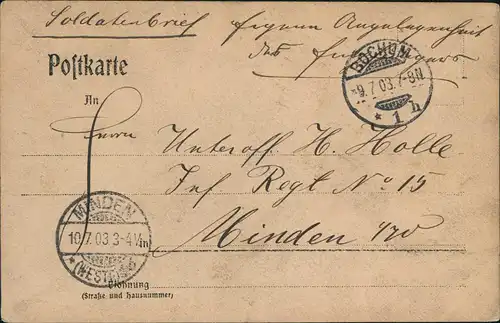 Soldatenbrief Eigene Angelegenheit
des Empfängers
Postkarte
BOCHUM
*9.7.03.7-8N
* 1 h
An
Herrn Unteroff. H. Holle
Inf Regt No 15
Minden i/W
MINDEN
10.7.03 3-4½N
* (WESTF.)
Wohnung
(Straße und Hausnummer)